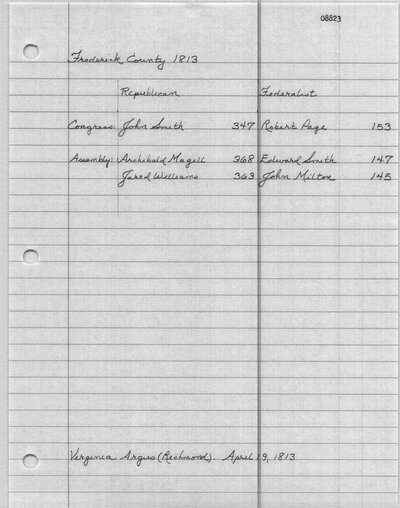 08823
Frederick County 1813
Republican Federalist
Congress: John Smith 347 Robert Page 153
Assembly: Archibald Magill 368 Edward Smith 147
Jared Williams 363 John Milton 145
Virginia Argus (Richmond). April 19, 1813